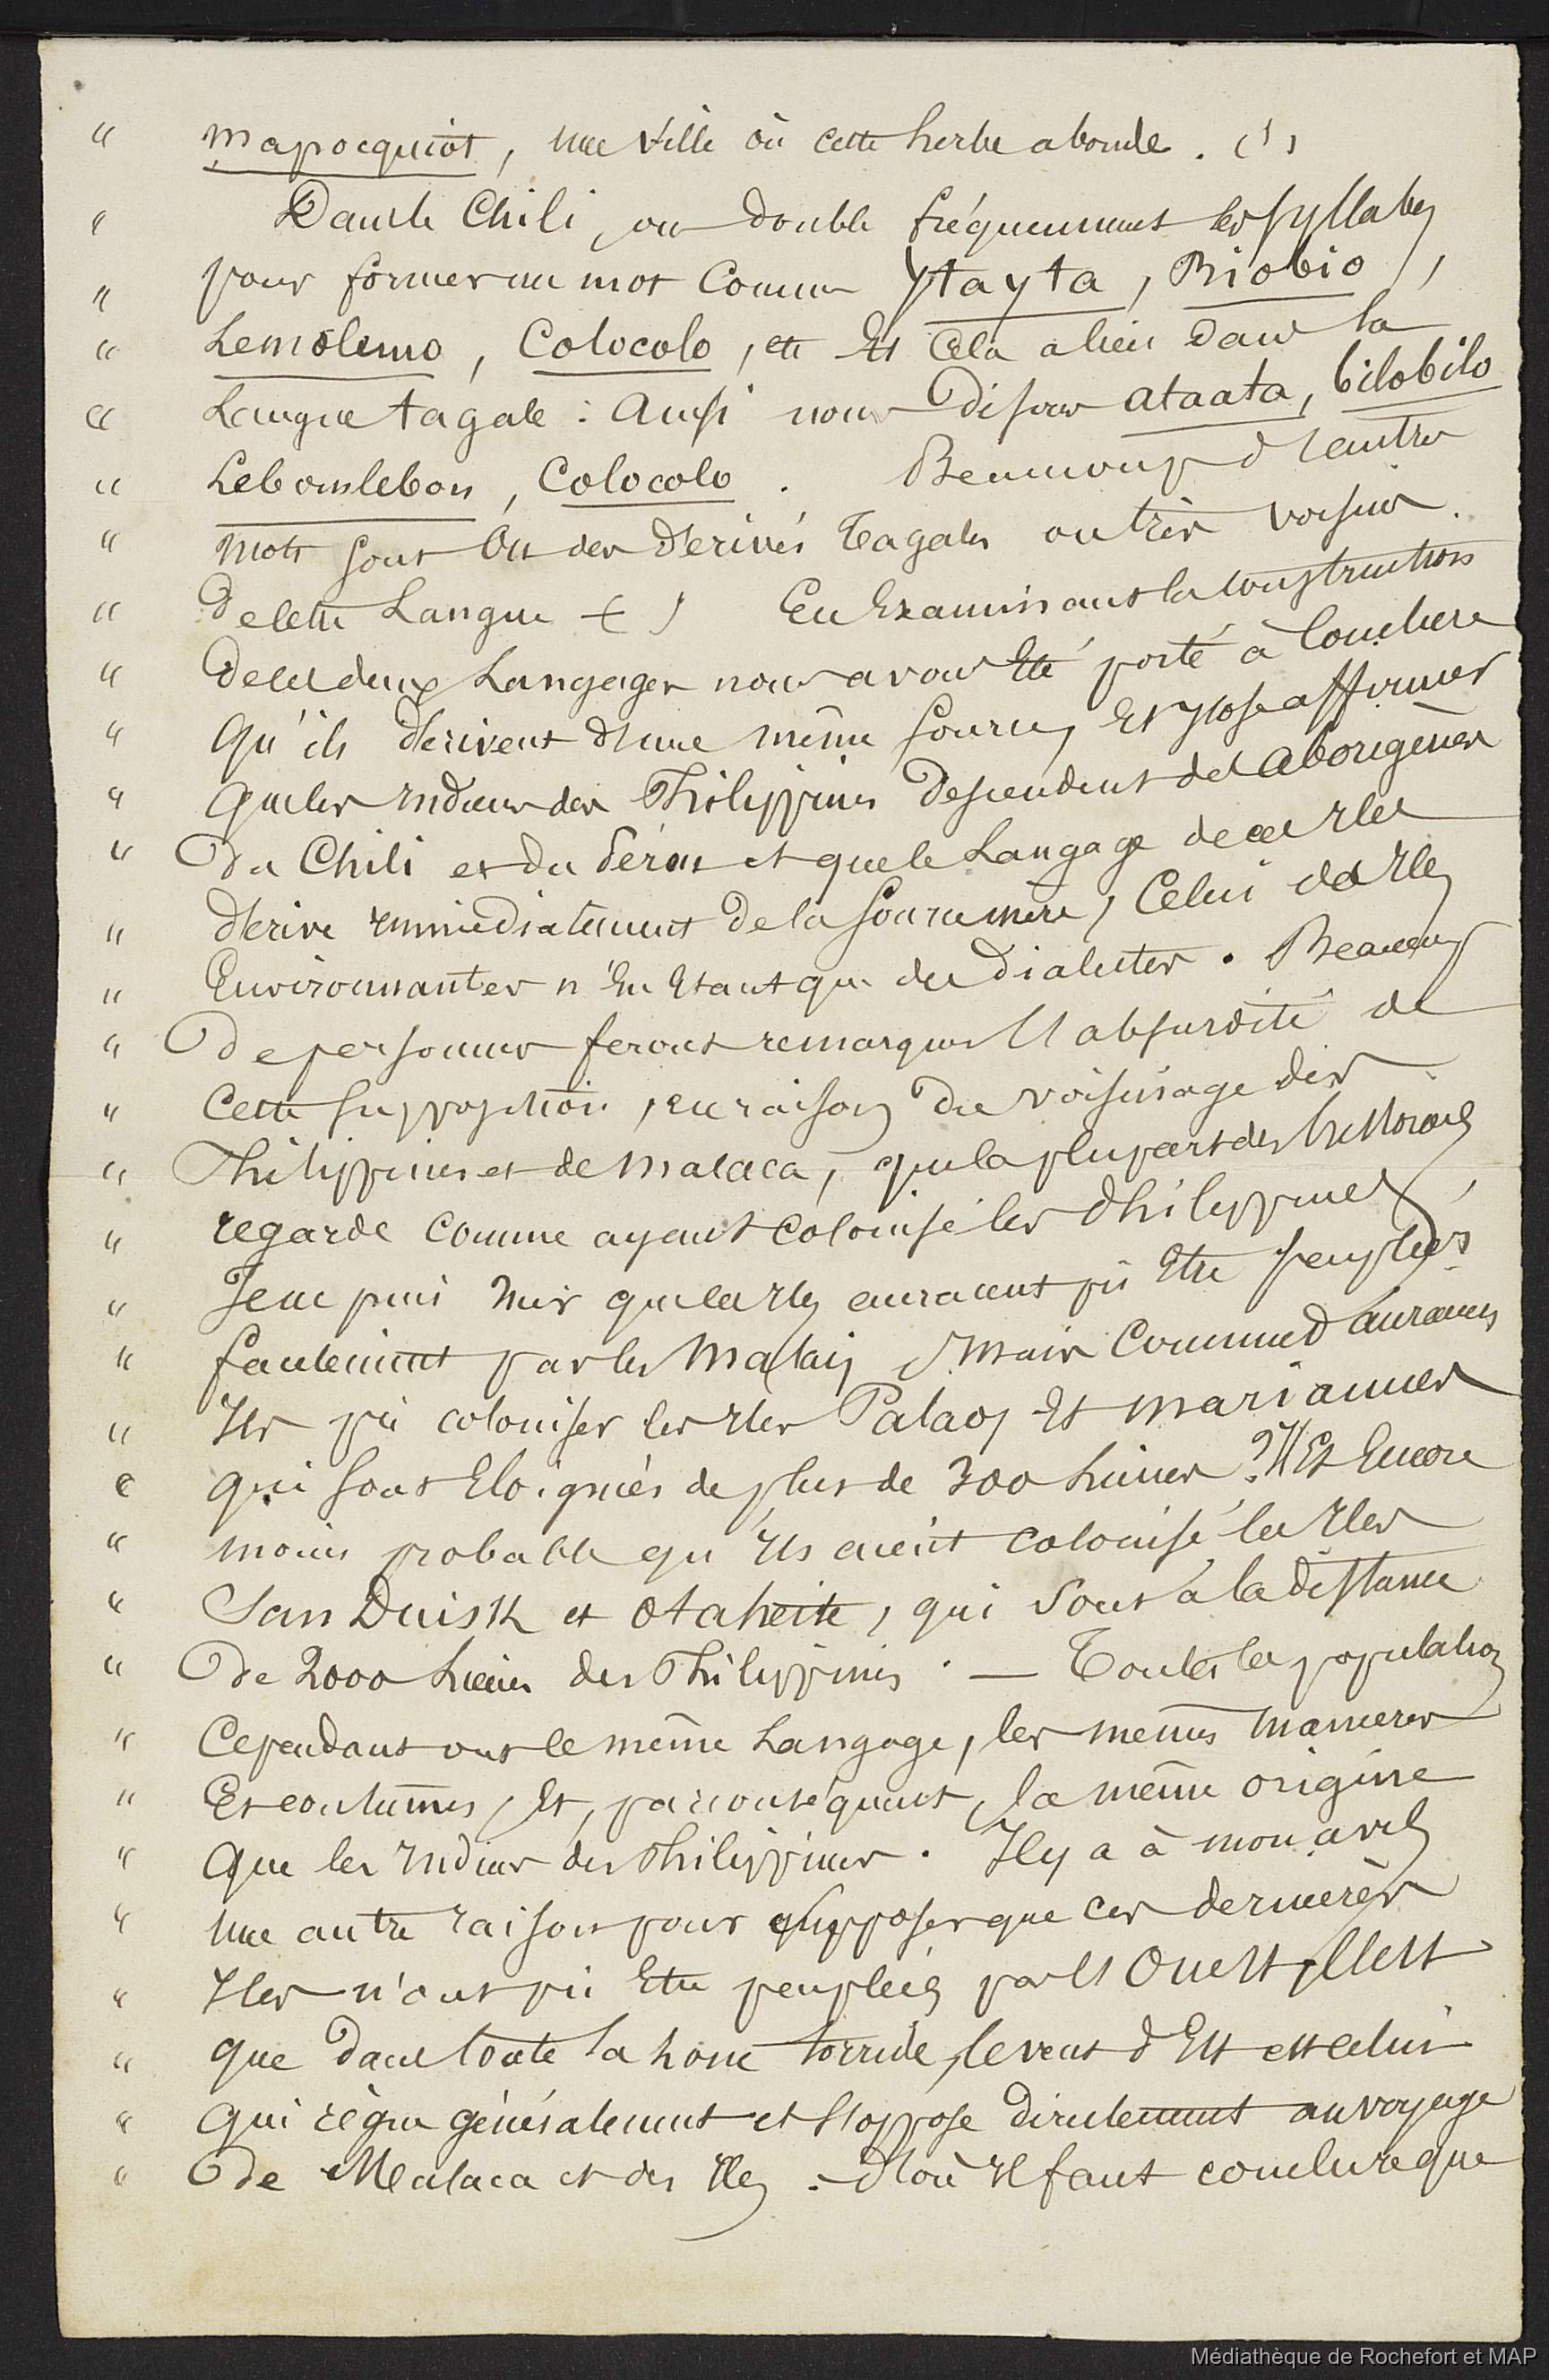 " mapocquiot, une ville où cette herbe abonde. (1)
" Dans le Chili, on double fréquemment les syllabes
" pour former un mot comme ytayta, Biobio,
" Lemolemo, Colocolo, etc Et cela a lieu dans la
" Langue tagale : Ainsi nous disons ataata, bilobilo
" Lebonlebon, Colocolo. Beaucoup d'autres
" mots sont ou des dérivés Tagales ou très voisins.
" de cette Langue En Examinant la construction
" de ces deux Langages nous avons Eté porté à conclure
" qu'ils dérivent d'une même source, Et j'ose affirmer
" que les Indiens des Philippines descendent des aborigènes
" du Chili et du Pérou et que le Langage de ces Iles
" dérive immédiatement de la source mère, Celui des Iles
" Environnantes n'En Etant que des dialectes. Beaucoup
" de personnes feront remarquer l'absurdité de
" Cette supposition, en raison du voisinage des
" Philippines et de Malaca, que la plupart des historiens
" regarde comme ayant colonisé les Philippines,
" Je ne puis nier que ces Iles auraient pû Etre peuplées
" facilement par les Malais, Mais Comment auraient
" Ils pû coloniser les Iles Palaos Et mariannes
" qui sont Eloignées de plus de 300 lieues ? Il Est Encore
" moins probable qu'Ils aient colonisé les Iles
" San Duisk et Otaheite, qui sont à la distance
" de 2000 lieues des Philippines. — Toutes les population
" Cependant ont le même Langage, les mêmes manières
" Et coutumes, Et, par conséquent, la même origine
" que les Indiens des Philippines. Il y a à mon avis
" une autre raison pour supposer que ces dernières
" Iles n'ont pû Etre peuplées par l'Ouest, c'est
" que dans toute la zone torride, le vent d'Est est celui
" qui règne généralement et s'oppose directement au voyage
" de Malaca et des Iles. D'où Il faut conclure que
Médiathèque de Rochefort et MAP